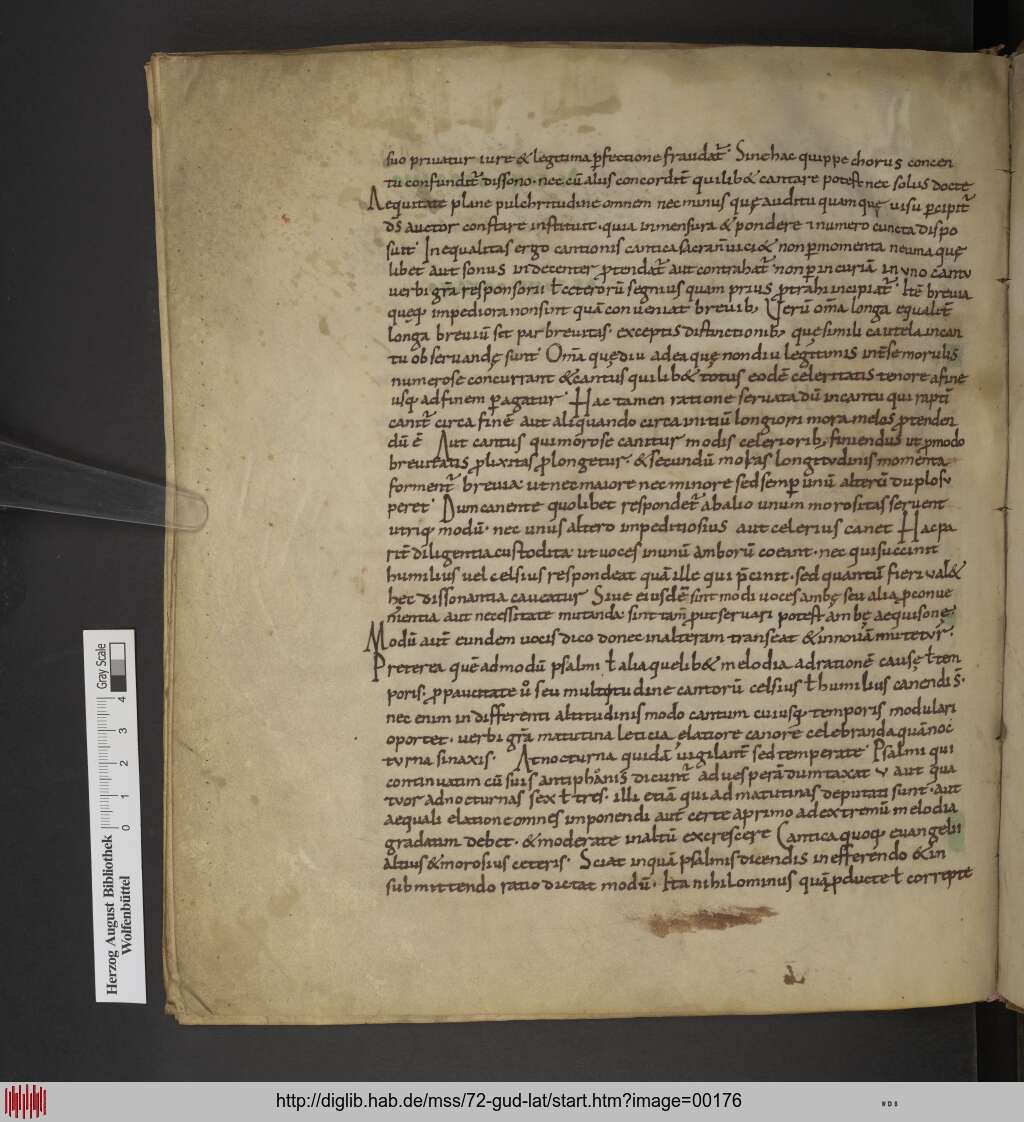 suo priuatur iure & legitima ꝑfectione fraudat᷑. Sine hac quippe chorus concen
tu confundit᷑ dissono. nec cū aliis concordit᷑ quilib& cantare potest nec solus docte
Aequitate plane pulchritudine omnem nec minus quę auditu quam quę uisu ꝑcipit᷑
d̄s auctor constare instituit. quia in mensura & pondere & numero cuncta dispo
suit. Inequalitas ergo cantionis cantica sacra n̄ uici& non ꝑ momenta neuma quę
libet aut sonus indecenter ꝓtendat᷑ aut contrahat᷑ non ꝑ incuriā in uno cantu
uerbi gr̄a responsorii ł ceterorū segnius quam prius ꝓtrahi incipiat᷑. Itē breuia
quęq; impediora non sint quā conueniat breuib; Verū om̄a longa equalit᷑
longa breuiū set par breuitas. exceptis distinctionib; quę simili cautela in can
tu obseruandę sunt. Om̄a quę diu ad ea quę non diu legitimis int̄ se morulis
numerose concurrant & cantus quilib& totus eodē celeritatis tenore a fine
usq; ad finem ꝑagatur. Hac tamen ratione seruata dū in cantu qui raptī
canit᷑ circa finē aut aliquando circa initiū longiori mora melos ꝓtenden
dū ē Aut cantus qui morose canitur modis celeriorib; finiendus ut ꝓ modo
breuitatis ꝓlixitas ꝓlongetur. & secundū moras longitudinis momenta
forment᷑ breuia. ut nec maiore nec minore sed semꝑ unū alterū duplo su
peret. Dum canente quolibet respondet᷑ ab alio unum morositas seruent
utriq; modū. nec unus altero impeditiosius aut celerius canet Hac pa
rit̄ diligentia custodita. ut uoces in unū amborū coeant. nec qui succinit
humilius uel celsius respondeat quā ille qui p̄cinit. sed quantū fieri ual&
hec dissonantia caueatur Siue eiusdē sint modi uoces ambę seu alia ꝓ conue
nientia aut necessitate mutanda. sint tam̄ ꝓut seruari potest ambę aequisone.
Modū aut̄ eundem uocis dico donec in alteram transeat & in nouā mutetur.
Preterea quē admodū psalmi ł alia quelib& melodia ad rationē causę ł tem
poris. ꝓ paucitate u̇ seu multitudine cantorū celsius ł humilius canendi s̄.
nec enim indifferenti altitudinis modo cantum cuiusq; temporis modulari
oportet. uerbi gr̄a matutina leticia elatiore canore celebranda quā noc
turna sinaxis. At nocturna quidā uigilant̄ sed temperate. Psalmi qui
continuatim cū suis antiphanis dicunt᷑ ad uesperā dumtaxat v aut qua
tuor ad nocturnas sex ł tres. illi etiā qui ad matutinas deputati sunt. aut
aequali elatione omnes imponendi aut certe a primo ad extremū melodia
gradatim debet. & moderate in altū excrescere Cantica quoq; euangelii
altius & morosius ceteris. Sciat in quā psalmis dicendis in efferendo & in
submittendo ratio dictat modū. Ita nihilominus quā ꝓducte ł correpte
Herzog August Bibliothek
Wolfenbüttel
Gray Scale
0 1 2 3 4
http://diglib.hab.de/mss/72-gud-lat/start.htm?image=00176
WDB